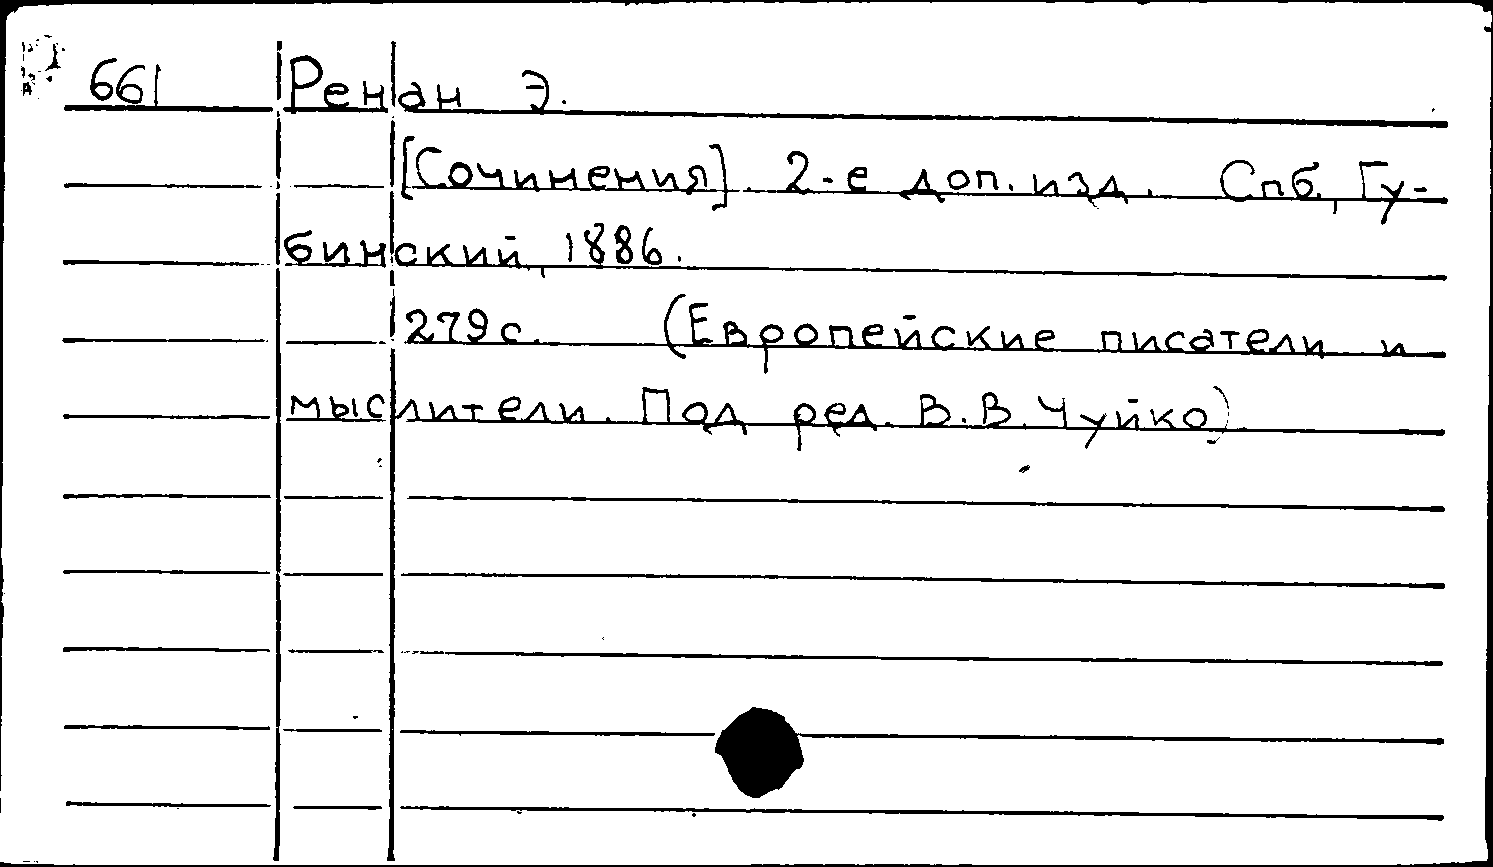 661 Ренан Э.
[Сочинения]. 2-е доп. изд. Спб., Гу-
бинский, 1886.
279с. (Европейские писатели и
мыслители. Под ред. В.В.Чуйко)